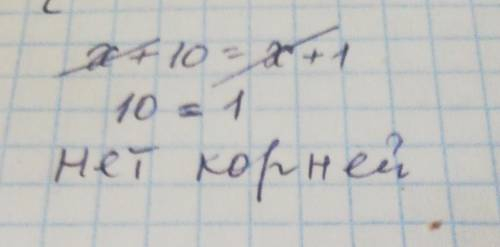 x + 10 = x + 1
10 = 1
нет корней